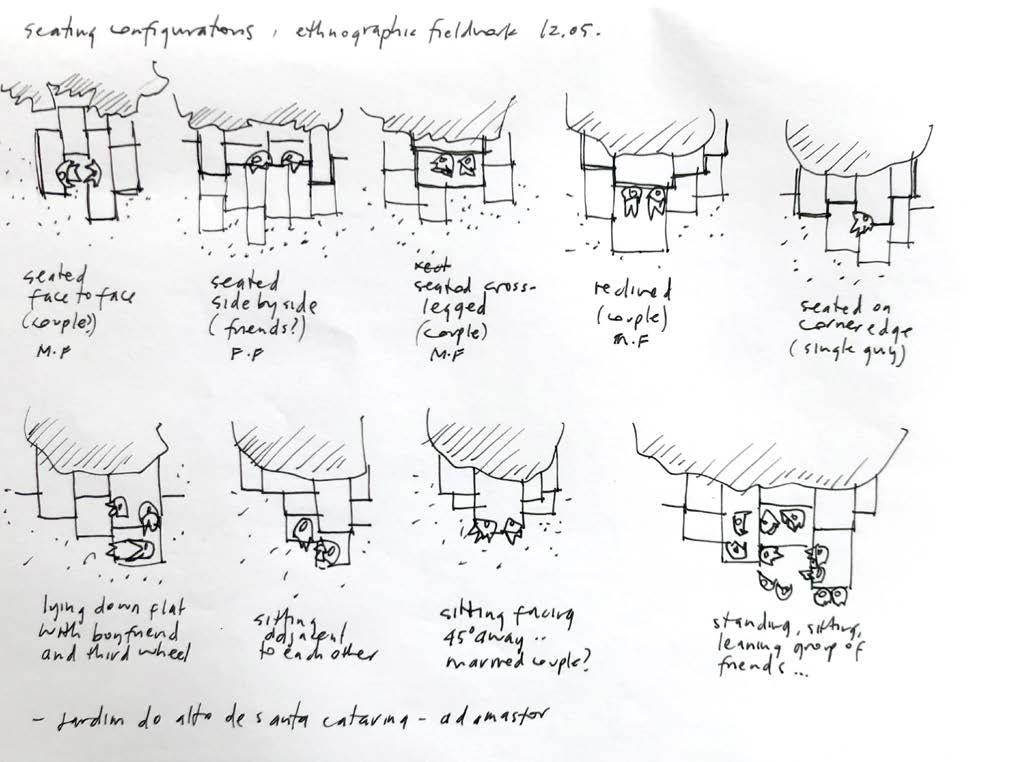 seating configurations, ethnographic fieldwork 12.05.
seated
face to face
(couple?)
M.F
seated
side by side
(friends?)
F.F
seated cross-
legged
(couple)
M.F
reclined
(couple)
M.F
seated on
corner edge
(single guy)
lying down flat
with boyfriend
and third wheel
sitting
adjacent
to each other
sitting facing
45° away..
married couple?
standing, sitting,
leaning group of
friends...
- Jardim do alto de santa catarina - adamastor